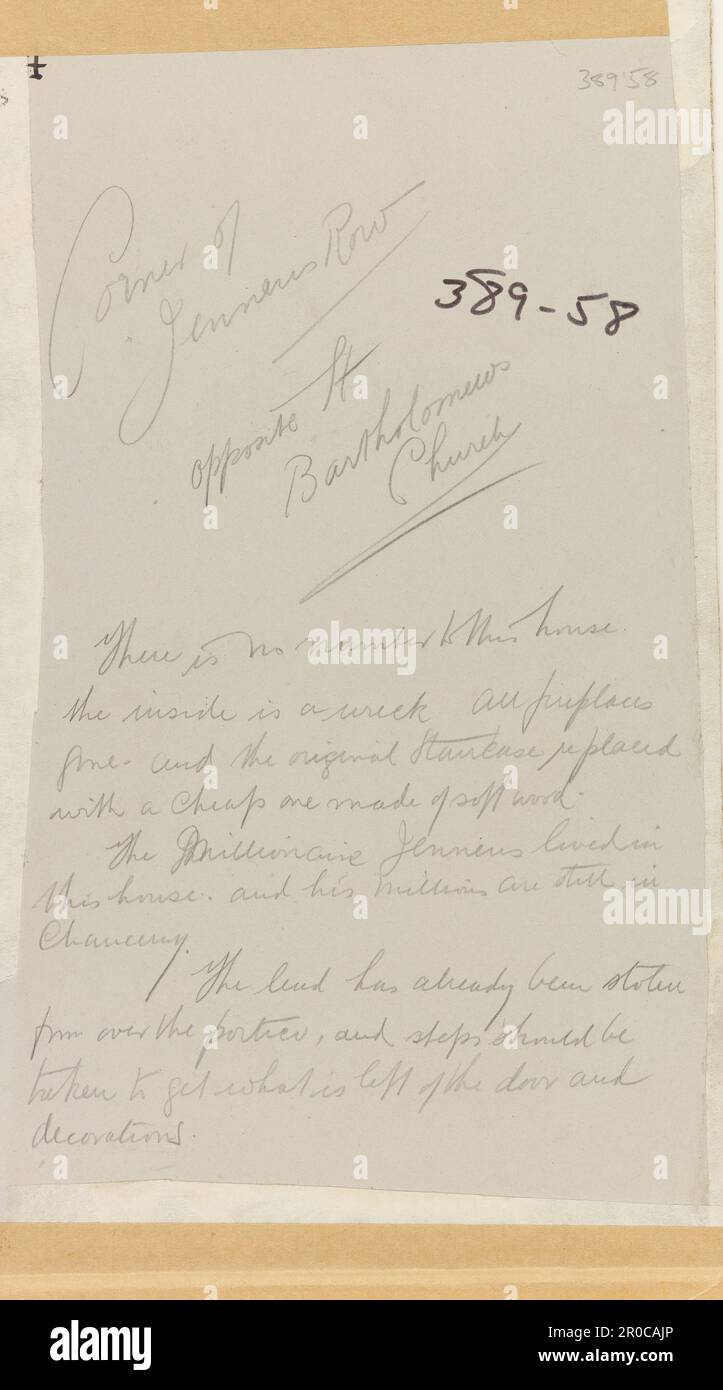 389'58
Corner of
Jennens Row
389-58
opposite St
Bartholomews
Church
There is no number to this house.
the inside is a wreck all fireplaces
gone. and the original Staircase replaced
with a cheap one made of soft wood.
The Millionaire Jennens lived in
this house. and his millions are still in
Chancery.
The lead has already been stolen
from over the portico, and steps should be
taken to get what is left of the door and
decorations.
alamy
Image ID: 2R0CAJP
www.alamy.com